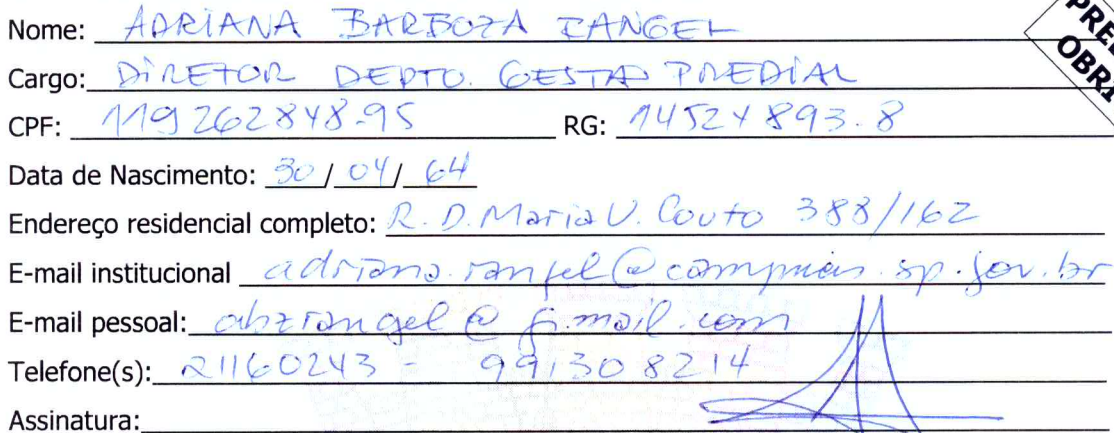 Nome: ADRIANA BARBOZA RANGEL
Cargo: DIRETOR DEPTO. GESTAO PREDIAL
CPF: 119262848-95 RG: 14524893-8
Data de Nascimento: 30/04/64
Endereço residencial completo: R. D. Maria U. Couto 388/162
E-mail institucional adriana.rangel@campinas.sp.gov.br
E-mail pessoal: abzrangel@gmail.com
Telefone(s): 21160243 - 991308214
Assinatura: